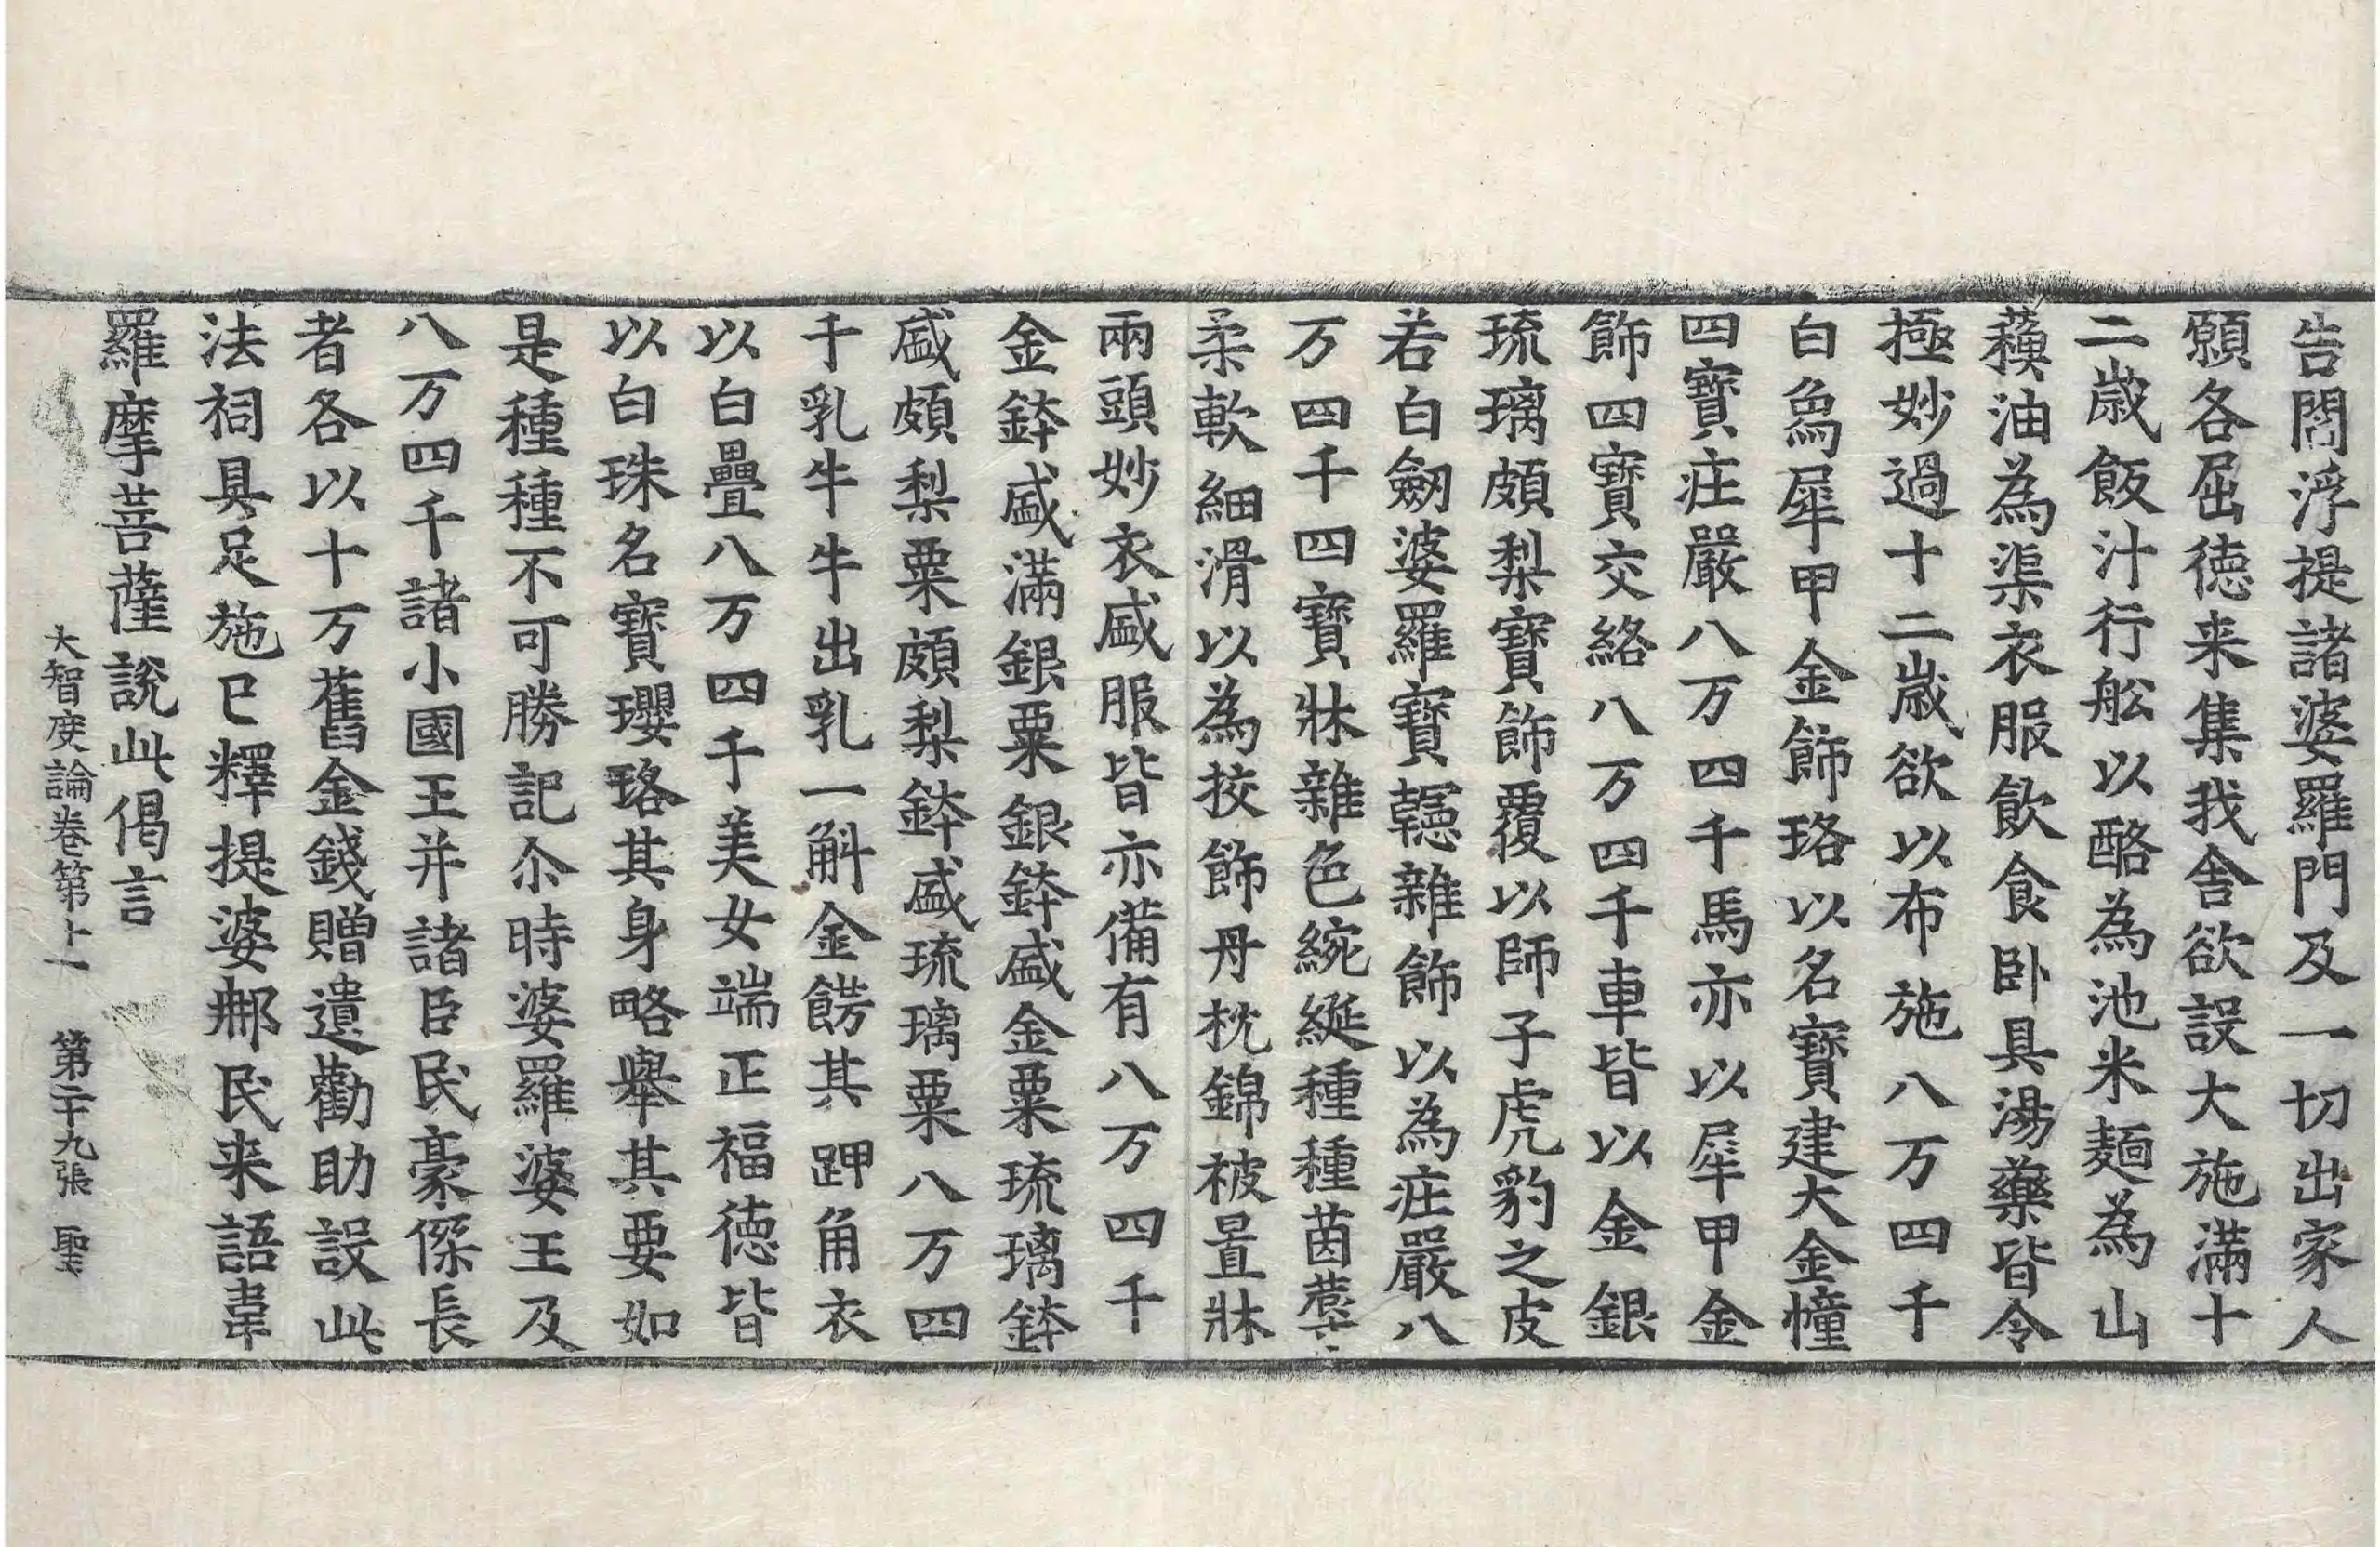 告閻浮提諸婆羅門及一切出家人
願各屈徳来集我舍欲設大施滿十
二歳飯汁行舩以酪為池米麺為山
蘓油為渠衣服飲食卧具湯藥皆令
極妙過十二歳欲以布施八万四千
白象犀甲金飾珞以名寶建大金幢
四寶莊嚴八万四千馬亦以犀甲金
飾四寶交絡八万四千車皆以金銀
琉璃頗梨寶飾覆以師子虎豹之皮
若白劒婆羅寶䡖雜飾以為莊嚴八
万四千四寶牀雜色綩綖種種茵蓐
柔軟細滑以為挍飾丹枕錦被置牀
兩頭妙衣盛服皆亦備有八万四千
金鉢盛滿銀粟銀鉢盛金粟琉璃鉢
盛頗梨粟頗梨鉢盛琉璃粟八万四
千乳牛牛出乳一斛金餝其𨈥角衣
以白疊八万四千美女端正福徳皆
以白珠名寶瓔珞其身略舉其要如
是種種不可勝記尒時婆羅婆王及
八万四千諸小國王并諸臣民豪傑長
者各以十万舊金錢贈遺勸助設此
法祠具足施已釋提婆那民来語韋
羅摩菩薩說此偈言
大智度論卷第十一　第二十九張　聖